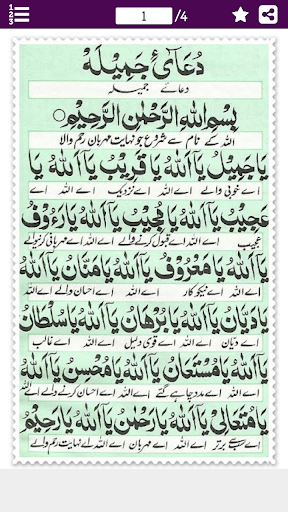 1 /4
دُعَائے جَمِیلَہ
دعائے جمیلہ
بِسْمِ اللهِ الرَّحْمٰنِ الرَّحِيْمِ
اللہ کے نام سے شروع جو نہایت مہربان رحم والا
يَا جَمِيْلُ يَا اَللهُ يَا قَرِيْبُ يَا اَللهُ يَا
اے خوبی والے اے اللہ اے نزدیک اے اللہ اے
عَجِيْبُ يَا اَللهُ يَا مُجِيْبُ يَا اَللهُ يَا رَءُوْفُ
عجیب اے اللہ اے قبول کرنے والے اے اللہ اے مہربانی کرنیوالے
يَا اَللهُ يَا مَعْرُوْفُ يَا اَللهُ يَا مَنَّانُ يَا اَللهُ
اے اللہ اے نیکوکار اے اللہ اے احسان والے اے اللہ
يَا دَيَّانُ يَا اَللهُ يَا بُرْهَانُ يَا اَللهُ يَا سُلْطَانُ
اے دیان اے اللہ اے قوی دلیل اے اللہ اے غالب
يَا اَللهُ يَا مُسْتَعَانُ يَا اَللهُ يَا مُحْسِنُ يَا اَللهُ
اے اللہ اے مدد چاہے گئے اے اللہ اے احسان کرنے والے اے اللہ
يَا مُتَعَالِيْ يَا اَللهُ يَا رَحْمٰنُ يَا اَللهُ يَا رَحِيْمُ
اے سب سے برتر اے اللہ اے مہربان اے اللہ اے نہایت رحم والے